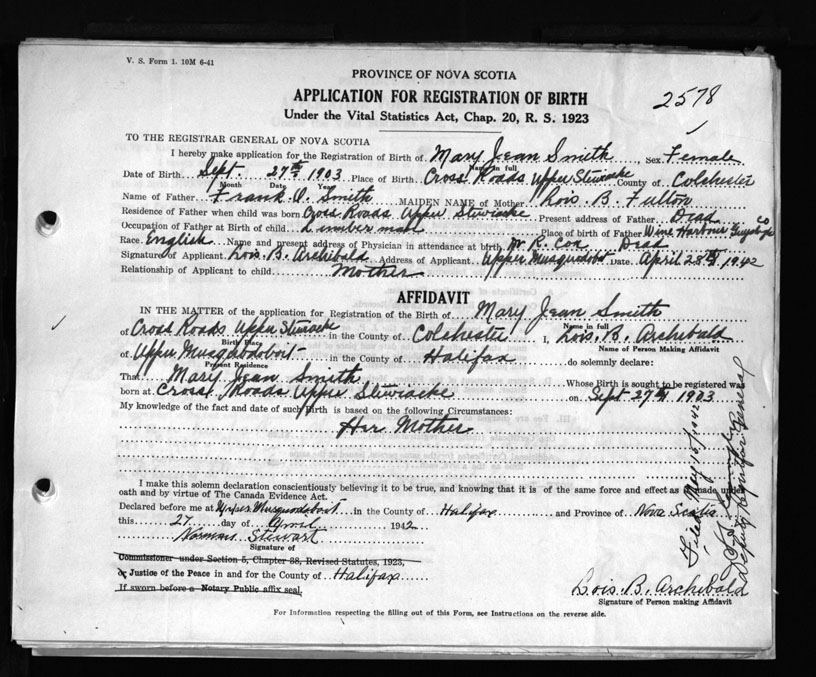 V. S. Form 1. 10M 6-41
PROVINCE OF NOVA SCOTIA
APPLICATION FOR REGISTRATION OF BIRTH
2578
Under the Vital Statistics Act, Chap. 20, R. S. 1923
TO THE REGISTRAR GENERAL OF NOVA SCOTIA
I hereby make application for the Registration of Birth of Mary Jean Smith, Sex Female
Name in full
Date of Birth Sept. 27th 1903 Place of Birth Cross Roads Upper Stewiacke County of Colchester
Month Date Year
Name of Father Frank O. Smith MAIDEN NAME of Mother Lois. B. Fulton
Residence of Father when child was born Cross Roads Upper Stewiacke Present address of Father Dead
Occupation of Father at Birth of child Lumber man Place of birth of Father Wine Harbour Guysboro Co
Race English Name and present address of Physician in attendance at birth W. R. Cox Dead
Signature of Applicant Lois. B. Archibald Address of Applicant Upper Musquodoboit Date April 28th 1942
Relationship of Applicant to child Mother
AFFIDAVIT
IN THE MATTER of the application for Registration of the Birth of Mary Jean Smith
Name in full
of Cross Roads Upper Stewiacke in the County of Colchester I, Lois. B. Archibald
Birth Place Name of Person Making Affidavit
of Upper Musquodoboit in the County of Halifax do solemnly declare:
Present Residence
That Mary Jean Smith Whose Birth is sought to be registered was
born at Cross Roads Upper Stewiacke on Sept 27th 1903
My knowledge of the fact and date of such Birth is based on the following Circumstances:
Her Mother
I make this solemn declaration conscientiously believing it to be true, and knowing that it is of the same force and effect as if made under
oath and by virtue of The Canada Evidence Act.
Declared before me at Upper Musquodoboit in the County of Halifax and Province of Nova Scotia
this 27 day of April 1942
Norman Stewart
Signature of
Commissioner under Section 5, Chapter 38, Revised Statutes, 1923,
or Justice of the Peace in and for the County of Halifax
If sworn before a Notary Public affix seal.
Lois. B. Archibald
Signature of Person making Affidavit
For Information respecting the filling out of this Form, see Instructions on the reverse side.
Filed May 15/1942
Deputy Registrar General